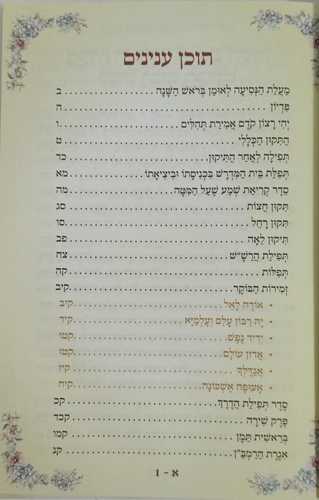 תוכן ענינים
מַעֲלַת הַנְּסִיעָה לְאוּמַן בְּרֹאשׁ הַשָּׁנָה ב
פִּדְיוֹן ה
יְהִי רָצוֹן קֹדֶם אֲמִירַת תְּהִלִּים ו
הַתִּקּוּן הַכְּלָלִי ט
תְּפִילָה לְאַחַר הַתִּיקוּן כד
תְּפִלַּת בֵּית הַמִּדְרָשׁ בִּכְנִיסָתוֹ וּבִיצִיאָתוֹ מא
סֵדֶר קְרִיאַת שְׁמַע שֶׁעַל הַמִּטָּה מה
תִּקּוּן חֲצוֹת סג
תִּקּוּן רָחֵל סו
תִּיקּוּן לֵאָה פב
תְּפִילַת הָרַשָׁ"שׁ צח
תְּפִלּוֹת קה
זְמִירוֹת הַבּוֹקֶר קיב
- אוֹדֶה לָאֵל קיב
- יָהּ רִבּוֹן עָלַם וְעָלְמַיָּא קיד
- יְדִיד נֶפֶשׁ קטו
- אֲדוֹן עוֹלָם קטז
- אֲגַדֶּלְךָ קיז
- קיח
סֵדֶר תְּפִילַת הַדֶּרֶךְ קכ
פֶּרֶק שִׁירָה קכד
בְּרֵאשִׁית הַמָּן קמו
אִגֶּרֶת הָרַמְבַּ"ן קנ
א - 1